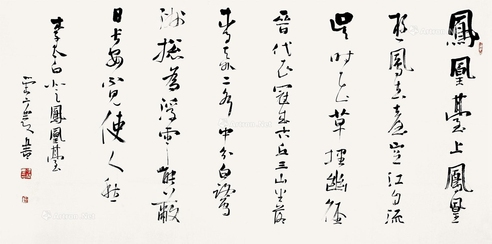 鳳凰臺上鳳凰
遊鳳去臺空江自流
吳時花草埋幽徑
晉代衣冠成古丘三山半落
青天外二水中分白鷺
洲總為浮雲能蔽
日長安不見使人愁
李太白登鳳凰臺